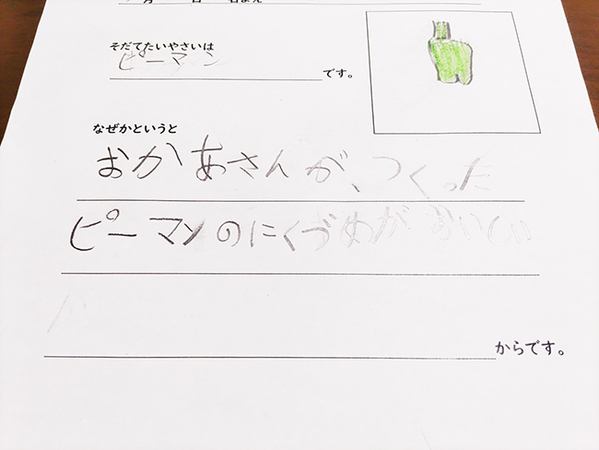 そだてたいやさいは
ピーマン です。
なぜかというと
おかあさんが、つくった
ピーマンのにくづめがおいしい
からです。